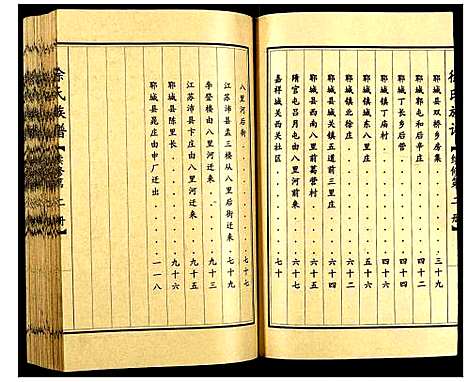 郓城县双桥乡房集 三十九
郓城郭屯和后辛庄 四十二
郓城丁长乡后营 四十四
郓城镇丁庙村 四十四
郓城镇东八里庄 六十
郓城镇北徐庄 六十二
郓城县城关镇五道前三里庄 六十四
郓城县西南八里前葛营村 六十六
隋官屯吕月屯由八里河前来 六十七
嘉祥城关西关社区 七十
八里河后街 七十七
江苏沛县孟三楼从八里后街迁来 七十九
李登楼由八里河迁来 九十三
江苏沛县卞庄由八里河迁来 九十五
郓城县陈里长 九十六
郓城县晁庄由申厂迁出 一一八
徐氏族谱【续修第二册】